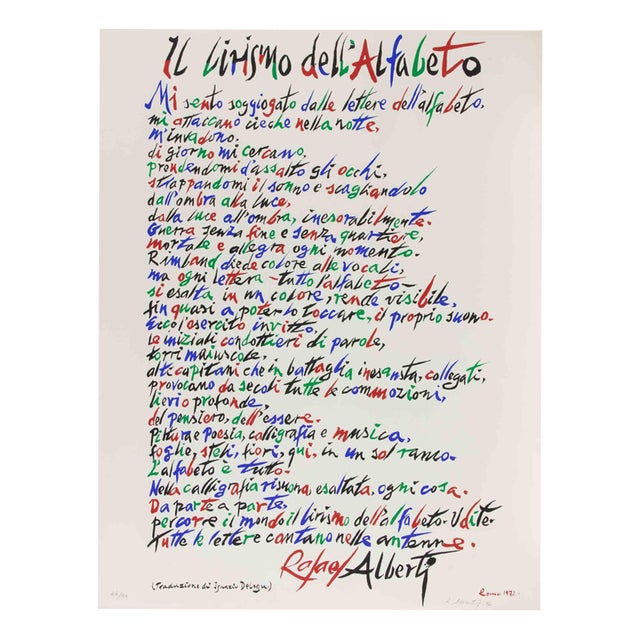 Il Lirismo dell'Alfabeto
Mi sento soggiogato dalle lettere dell'alfabeto.
mi attaccano cieche nella notte,
m'invadono.
di giorno mi cercano,
prendendomi d'assalto gli occhi,
strappandomi il sonno e scagliandolo
dall'ombra alla luce,
dalla luce all'ombra, inesorabilmente.
Guerra senza fine e senza quartiere,
mortale e allegra ogni momento.
Rimbaud diede colore alle vocali,
ma ogni lettera - tutto l'alfabeto -
si esalta in un colore, rende visibile,
fin quasi a poterlo toccare, il proprio suono.
Ecco l'esercito invitto,
le iniziali condottieri di parole,
torri maiuscole,
alti capitani che in battaglia inesausta, collegati,
provocano da secoli tutte le commozioni,
lievi o profonde,
del pensiero, dell'essere.
Pittura e Poesia, calligrafia e musica,
foglie, steli, fiori, qui, in un sol ramo.
L'alfabeto è tutto.
Nella calligrafia risuona, esaltata, ogni cosa.
Da parte a parte,
percorre il mondo il lirismo dell'alfabeto. Udite.
Tutte le lettere cantano nelle antenne.
Rafael Alberti
(Traduzione di Ignazio Delogu)
Roma 1972.